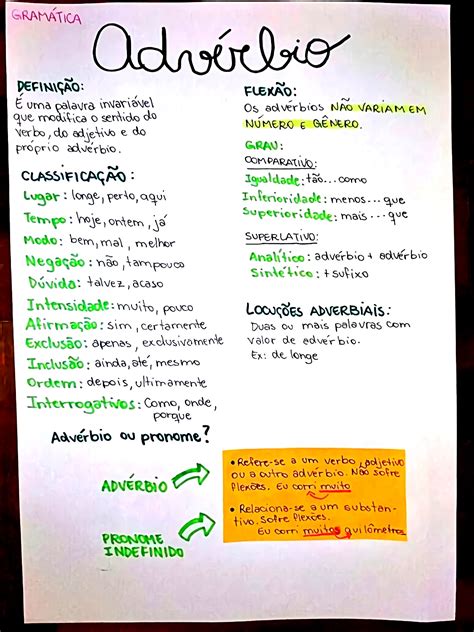 GRAMÁTICA
Advérbio
DEFINIÇÃO:
É uma palavra invariável
que modifica o sentido do
verbo, do adjetivo e do
próprio advérbio.
CLASSIFICAÇÃO:
Lugar: longe, perto, aqui
Tempo: hoje, ontem, já
Modo: bem, mal, melhor
Negação: não, tampouco
Dúvida: talvez, acaso
Intensidade: muito, pouco
Afirmação: sim, certamente
Exclusão: apenas, exclusivamente
Inclusão: ainda, até, mesmo
Ordem: depois, ultimamente
Interrogativos: Como, onde,
porque
FLEXÃO:
Os advérbios NÃO VARIAM EM
NÚMERO E GÊNERO.
GRAU:
COMPARATIVO:
Igualdade: tão...como
Inferioridade: menos...que
Superioridade: mais...que
SUPERLATIVO:
Analítico: advérbio + advérbio
Sintético: +sufixo
LOCUÇÕES ADVERBIAIS:
Duas ou mais palavras com
valor de advérbio.
Ex: de longe
Advérbio ou pronome?
ADVÉRBIO
• Refere-se a um verbo, adjetivo
ou a outro advérbio. Não sofre
flexões. Eu corri muito
PRONOME
INDEFINIDO
• Relaciona-se a um substan-
tivo. Sofre flexões.
Eu corri muitos quilômetros